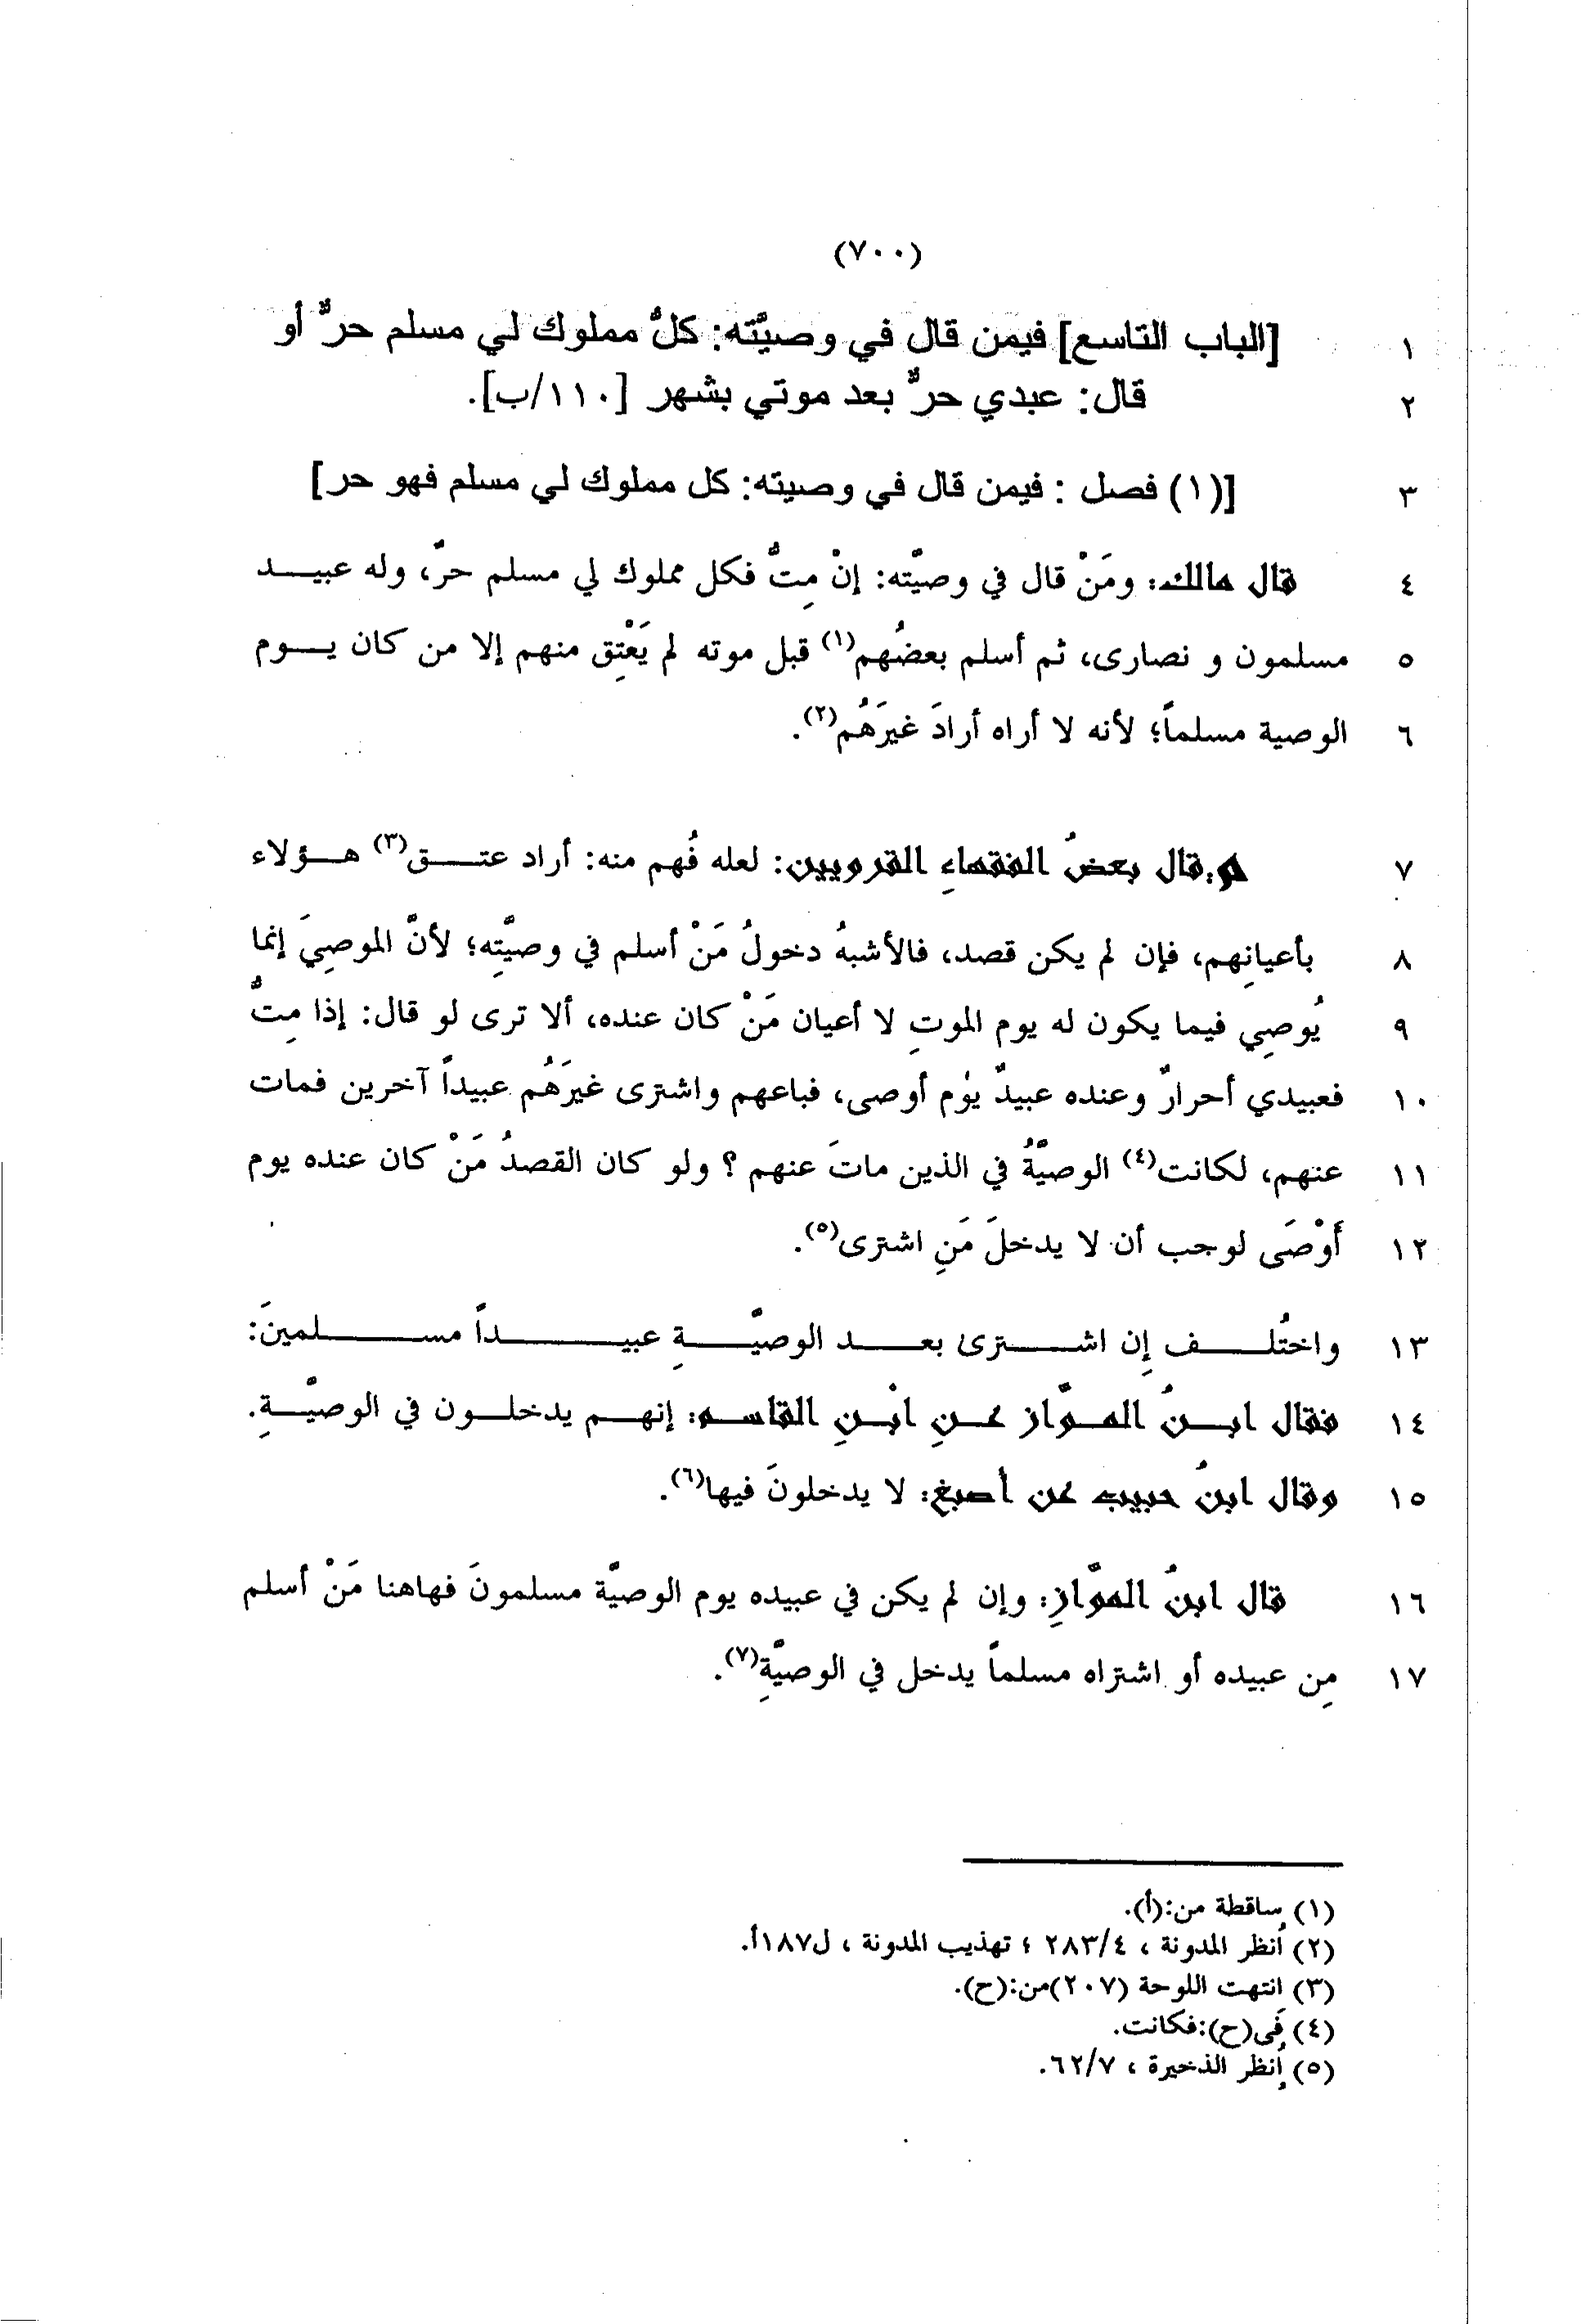 (٧٠٠)
١ [الباب التاسع] فيمن قال في وصيَّته: كلُّ مملوك لي مسلم حرٌّ أو
٢ قال: عبدي حرٌّ بعد موتي بشهر [١١٠/ب].
٣ [(١) فصل : فيمن قال في وصيته: كل مملوك لي مسلم فهو حر]
٤ قال مالك: ومَنْ قال في وصيَّته: إنْ مِتُّ فكل مملوك لي مسلم حرّ، وله عبيـــد
٥ مسلمون و نصارى، ثم أسلم بعضُهم(١) قبل موته لم يَعْتِق منهم إلا من كان يـــوم
٦ الوصية مسلماً؛ لأنه لا أراه أرادَ غيرَهُم(٢).
٧ قال بعضُ الفقهاءِ القرويين: لعله فُهم منه: أراد عتـــق(٣) هـــؤلاء
٨ بأعيانِهم، فإن لم يكن قصد، فالأشبهُ دخولُ مَنْ أسلم في وصيَّتِه؛ لأنَّ الموصِيَ إنما
٩ يُوصِي فيما يكون له يوم الموتِ لا أعيان مَنْ كان عنده، ألا ترى لو قال: إذا مِتُّ
١٠ فعبيدي أحرارٌ وعنده عبيدٌ يوْم أوصى، فباعهم واشترى غيرَهُم عبيداً آخرين فمات
١١ عنهم، لكانت(٤) الوصيَّةُ في الذين ماتَ عنهم ؟ ولو كان القصدُ مَنْ كان عنده يوم
١٢ أَوْصَى لوجب أن لا يدخلَ مَنِ اشترى(٥).
١٣ واختُلـــف إن اشـــترى بعـــد الوصيَّـــةِ عبيـــداً مســـلمينَ:
١٤ فقال ابـــنُ المـــوَّاز عـــنِ ابْـــنِ القاســـم: إنهـــم يدخلـــون في الوصيَّـــةِ.
١٥ وقال ابنُ حبيب عن أصبغ: لا يدخلونَ فيها(٦).
١٦ قال ابنُ الموَّازِ: وإن لم يكن في عبيده يوم الوصيَّة مسلمونَ فهاهنا مَنْ أسلم
١٧ مِن عبيده أو اشتراه مسلماً يدخل في الوصيَّةِ(٧).
(١) ساقطة من:(أ).
(٢) اُنظر المدونة ، ٢٨٣/٤ ؛ تهذيب المدونة ، ل١٨٧أ.
(٣) انتهت اللوحة (٢٠٧)من:(ح).
(٤) في(ح):فكانت.
(٥) اُنظر الذخيرة ، ٦٢/٧.